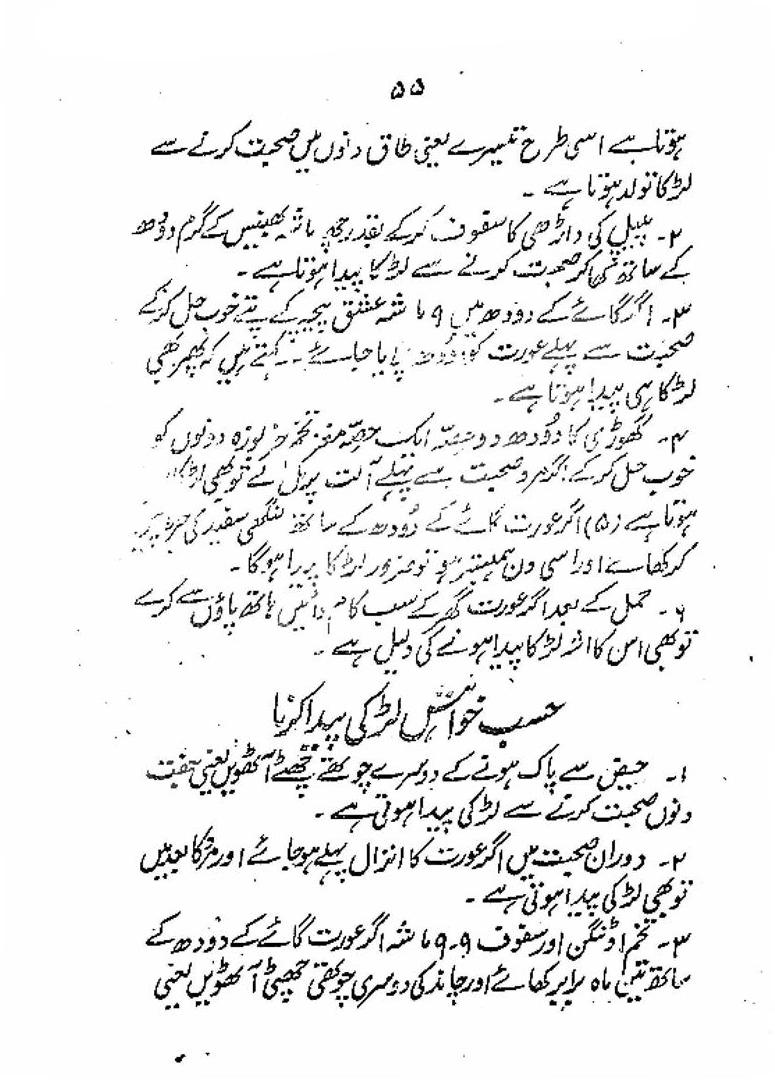 ۵۵
ہوتا ہے اسی طرح تیسرے یعنی طاق دنوں میں صحبت کرنے سے
لڑکا تولد ہوتا ہے ۔
۲۔ پیپل کی داڑھی کا سفوف کر کے بقدر چھ ماشہ بھینس کے گرم دودھ
کے ساتھ کھا کر صحبت کرنے سے لڑکا پیدا ہوتا ہے ۔
۳۔ اگر گائے کے دودھ میں ۹ ماشہ عشق پیچہ کے پتے خوب حل کر کے
صحبت سے پہلے عورت کو دودھ پلایا جائے ۔ کہتے ہیں کہ پھر بھی
لڑکا ہی پیدا ہوتا ہے ۔
۴۔ گھوڑی کا دُودھ دو حصہ ایک حصہ مغز تخم خربوزہ دونوں کو
خوب حل کر کے اگر مرد صحبت سے پہلے آلت پر مل لے تو بھی لڑکا
ہوتا ہے (۵) اگر عورت گائے کے دُودھ کے ساتھ سفید کی جڑ
کر کھائے اور اسی دن ہمبستر ہو تو ضرور لڑکا پیدا ہوگا ۔
۶۔ حمل کے بعد اگر عورت گھر کے سب کام دائیں ہاتھ پاؤں سے کرے
تو بھی اس کا اثر لڑکا پیدا ہونے کی دلیل ہے ۔
حسب خواہش لڑکی پیدا کرنا
۱۔ حیض سے پاک ہونے کے دوسرے چوتھے چھٹے آٹھویں یعنی جفت
دنوں صحبت کرنے سے لڑکی پیدا ہوتی ہے ۔
۲۔ دوران صحبت میں اگر عورت کا انزال پہلے ہو جائے اور مرد کا بعد میں
تو بھی لڑکی پیدا ہوتی ہے ۔
۳۔ تخم اوٹنگن اور سفوف ۹۔۹ ماشہ اگر عورت گائے کے دودھ کے
ساتھ تین ماہ برابر کھائے اور چاند کی دوسری چوتھی چھٹی آٹھویں یعنی